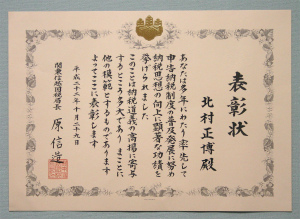 表彰状
北村正博殿
あなたは多年にわたり率先して
申告納税制度の普及発展に努め
納税思想の向上に顕著な功績を
挙げられました
このことは納税道義の高揚に寄与
するところ多大であり まことに
他の模範とするものであります
よってここに表彰します
平成二十二年十月二十九日
関東信越国税局長
原信